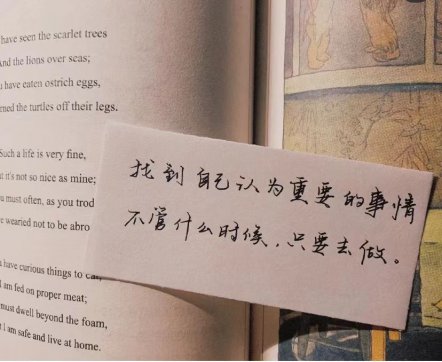 have seen the scarlet trees
And the lions over seas;
have eaten ostrich eggs,
rned the turtles off their legs.
Such a life is very fine,
it's not so nice as mine;
must often, as you trod
wearied not to be abro
have curious things to eat,
I am fed on proper meat;
must dwell beyond the foam,
I am safe and live at home.
找到自己认为重要的事情
不管什么时候，只要去做。